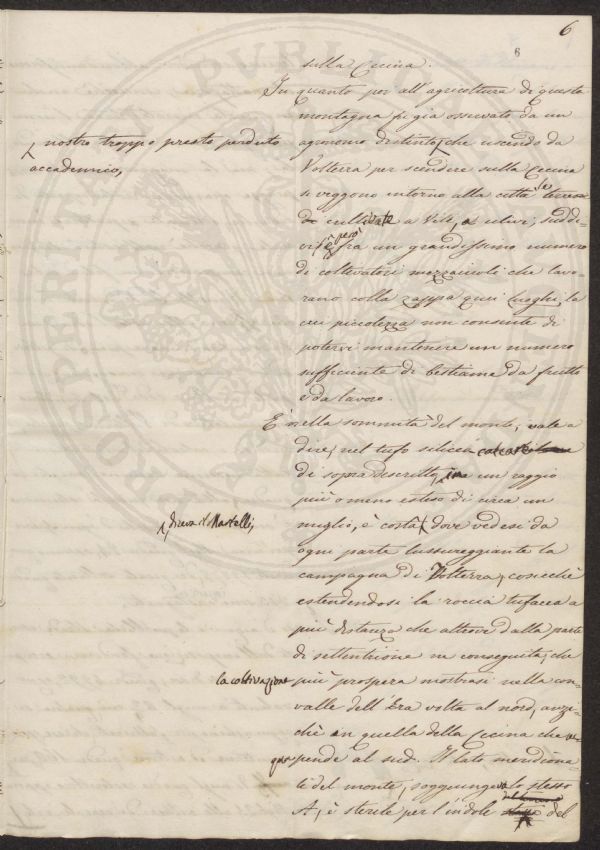 6
6
sulla Cecina.
In quanto poi all'agricoltura di questa
montagna fu già osservato da un
nostro troppo presto perduto
accademico,
agronomo distinto, che uscendo da
Volterra per scendere sulla Cecina
si veggono intorno alla città le terre
cultivate a viti, e ulivi, suddi-
vise però fra un grandissimo numero
di coltivatori mezzaioli che lavo-
rano colla zappa quei luoghi, la
cui piccolezza non consente di
potervi mantenere un numero
sufficiente di bestiame da frutto
e da lavoro.
È nella sommità del monte, vale a
dire, nel tufo siliceo calcare
di sopra descritto, in un raggio
più o meno esteso di circa un
miglio, è costà,
diceva il Martelli,
dove vedesi da
ogni parte lussureggiante la
campagna di Volterra, cosicchè
estendendosi la roccia tufacea a
più distanza che altrove dalla parte
di settentrione ne conseguita, che
la coltivazione
più prospera mostrasi nella con-
valle dell'Era volta al nord, anzi-
chè in quella della Cecina che
spende al sud. Il lato meridiona-
le del monte, soggiungeva lo stesso
A, è sterile per l'indole del
PROSPERITATI PUBLICAE